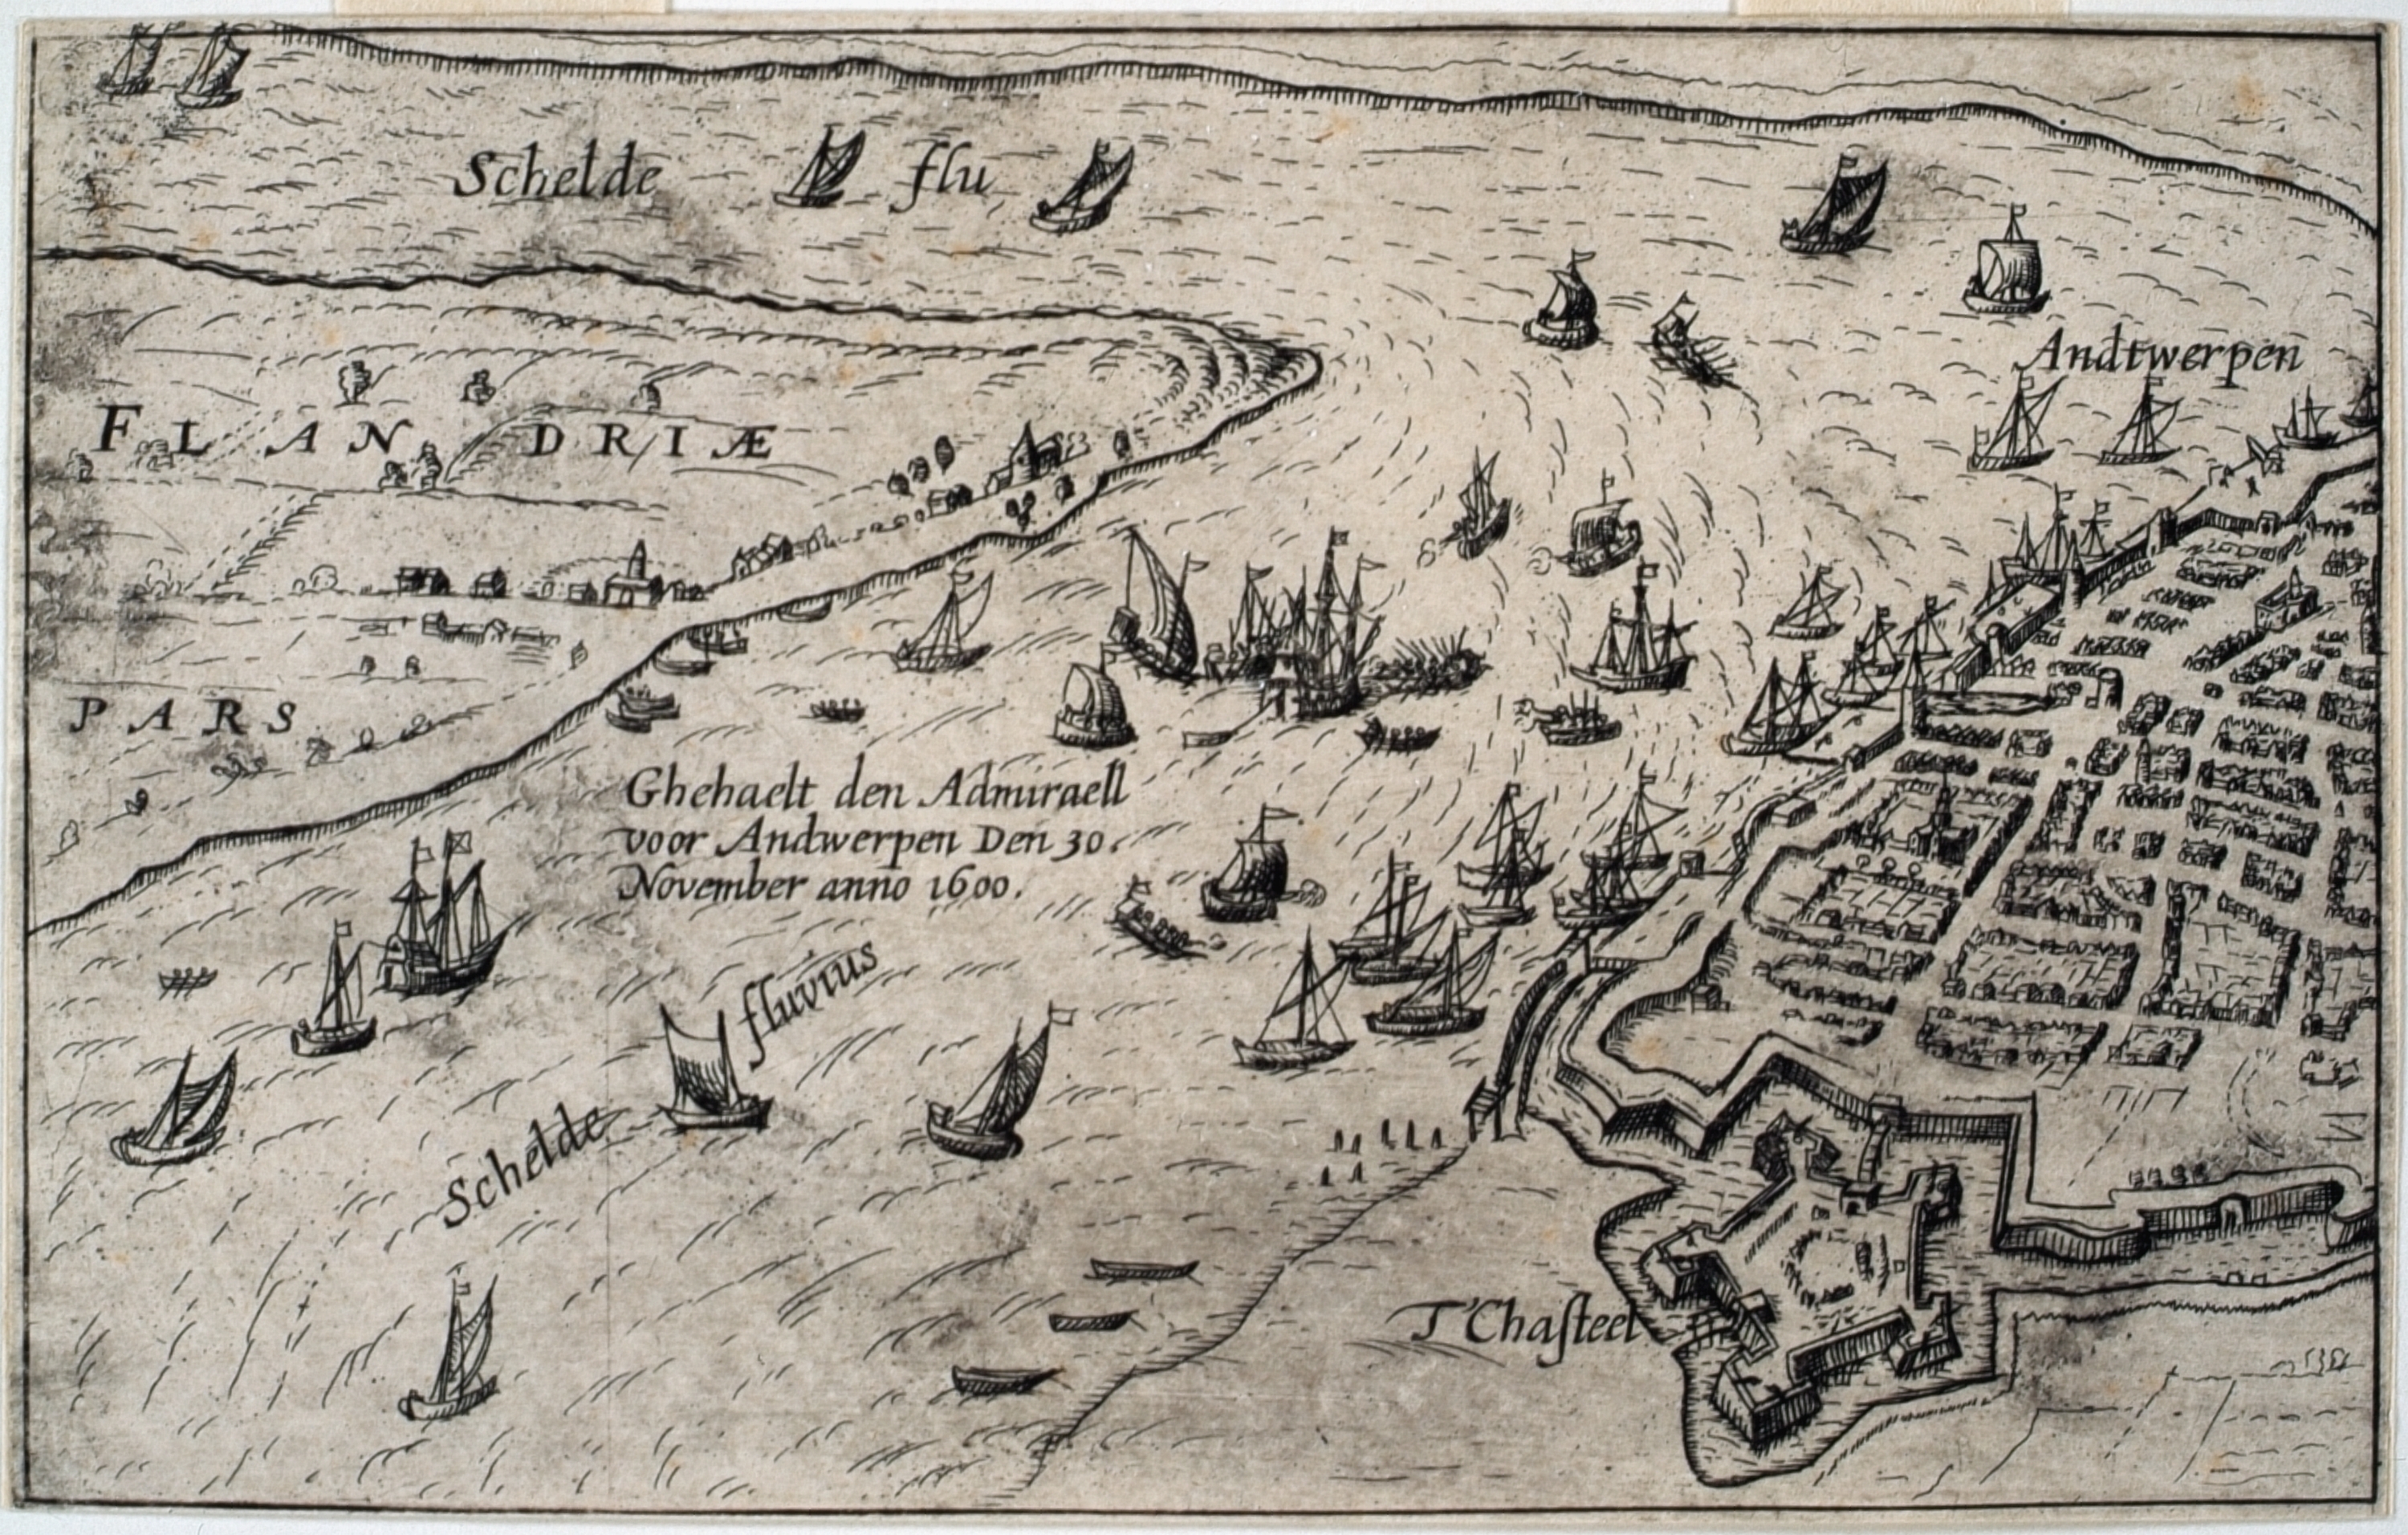 Schelde flu
Andtwerpen
FLANDRIÆ
PARS
Ghehaelt den Admiraell
voor Andwerpen Den 30.
November anno 1600.
Schelde fluvius
T'Chaſteel